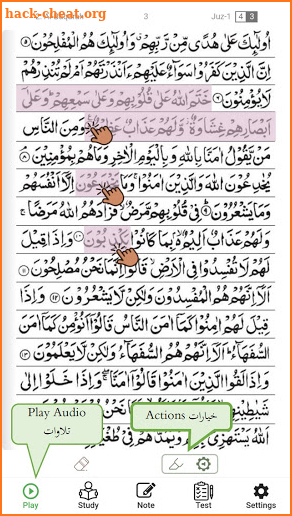 hack-cheat.org
3
Juz-1
4 3
اُولٰٓئِكَ عَلٰى هُدًى مِّنْ رَّبِّهِمْ وَاُولٰٓئِكَ هُمُ الْمُفْلِحُوْنَ ۵
اِنَّ الَّذِيْنَ كَفَرُوْا سَوَآءٌ عَلَيْهِمْ ءَاَنْذَرْتَهُمْ اَمْ لَمْ تُنْذِرْهُمْ
لَا يُؤْمِنُوْنَ ۶ خَتَمَ اللّٰهُ عَلٰى قُلُوْبِهِمْ وَعَلٰى سَمْعِهِمْ وَعَلٰٓى
اَبْصَارِهِمْ غِشَاوَةٌ وَّلَهُمْ عَذَابٌ وَمِنَ النَّاسِ
مَنْ يَّقُوْلُ اٰمَنَّا بِاللّٰهِ وَبِالْيَوْمِ الْاٰخِرِ وَمَا هُمْ بِمُؤْمِنِيْنَ ۸
يُخٰدِعُوْنَ اللّٰهَ وَالَّذِيْنَ اٰمَنُوْا وَمَا يَخْدَعُوْنَ اِلَّآ اَنْفُسَهُمْ
وَمَا يَشْعُرُوْنَ ۹ فِيْ قُلُوْبِهِمْ مَّرَضٌ فَزَادَهُمُ اللّٰهُ مَرَضًا
وَلَهُمْ عَذَابٌ اَلِيْمٌ بِمَا كَانُوْا يَكْذِبُوْنَ ۱۰ وَاِذَا قِيْلَ
لَهُمْ لَا تُفْسِدُوْا فِي الْاَرْضِ قَالُوْٓا اِنَّمَا نَحْنُ مُصْلِحُوْنَ ۱۱
اَلَآ اِنَّهُمْ هُمُ الْمُفْسِدُوْنَ وَلٰكِنْ لَّا يَشْعُرُوْنَ ۱۲ وَاِذَا
قِيْلَ لَهُمْ اٰمِنُوْا كَمَآ اٰمَنَ النَّاسُ قَالُوْٓا اَنُؤْمِنُ كَمَآ اٰمَنَ
السُّفَهَآءُ اَلَآ اِنَّهُمْ هُمُ السُّفَهَآءُ وَلٰكِنْ لَّا يَعْلَمُوْنَ ۱۳
وَاِذَا لَقُوا الَّذِيْنَ اٰمَنُوْا قَالُوْٓا اٰمَنَّا وَاِذَا خَلَوْا اِلٰى
شَيٰطِيْنِهِمْ
اَللّٰهُ يَسْتَهْزِئُ بِهِمْ وَيَمُدُّهُمْ فِيْ
Play Audio
تلاوات
Actions خيارات
Play
Study
Note
Test
Settings
hack-cheat.org